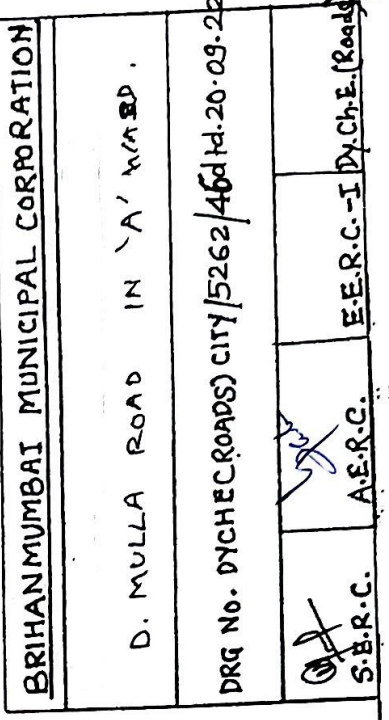 BRIHANMUMBAI MUNICIPAL CORPORATION
D. MULLA ROAD IN 'A' WARD.
DRG NO. DYCHE(ROADS) CITY/5262/46dtd.20.09.22
S.E.R.C. A.E.R.C. E.E.R.C.-I Dy.Ch.E.(Roads